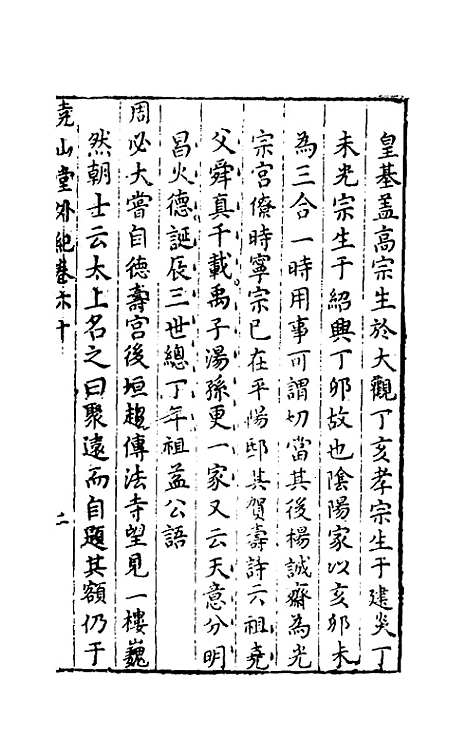 皇基盖高宗生於大觀丁亥孝宗生于建炎丁
未光宗生于紹興丁卯故也陰陽家以亥卯未
為三合一時用事可謂切當其後楊誠齋為光
宗宮僚時寧宗已在平陽邸其賀壽詩云祖堯
父舜真千載禹子湯孫更一家又云天意分明
昌火德誕辰三世總丁年祖益公語
周必大嘗自德壽宮後垣趨傳法寺望見一樓巍
然朝士云太上名之曰聚遠而自題其額仍于
堯山堂外紀卷六十
二